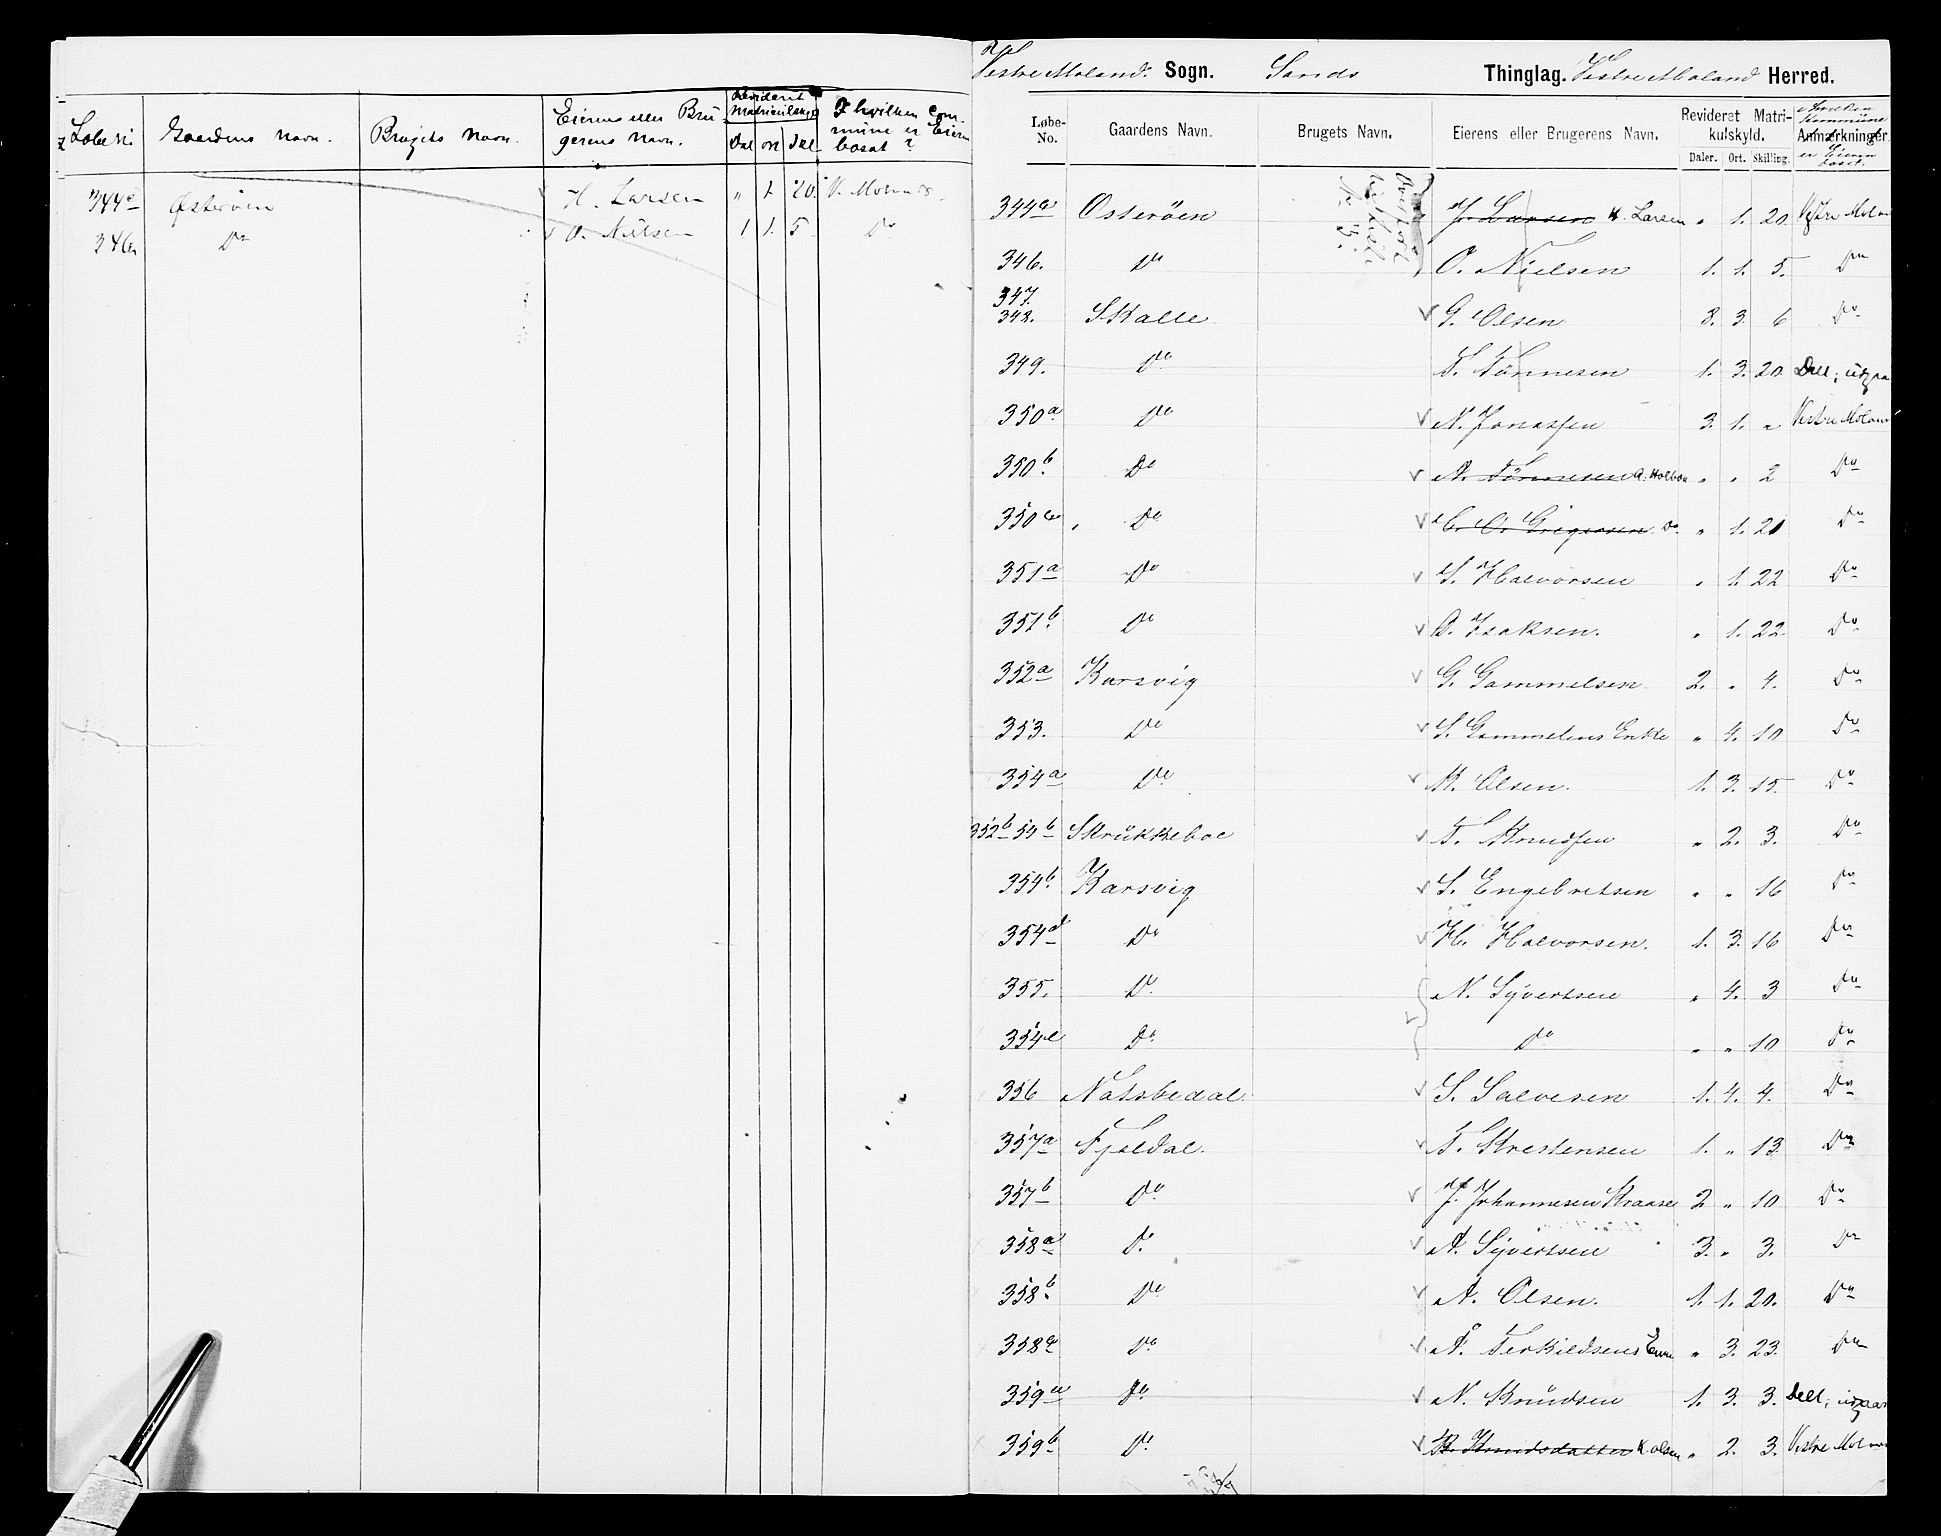 Løbe No. Gaardens Navn. Brugets Navn. Eierens eller Brugerens Navn. Revideret Matriculskyld Dal. Ort Skl. I hvilken Commune er Eieren bosat?
344c Østerøen H. Larsen " 1 20. V. Moland
346 Do O. Nilsen 1 1. 5. Do
Vestre Moland. Sogn. Sands Thinglag. Vestre Moland Herred.
Løbe-No. Gaardens Navn. Brugets Navn. Eierens eller Brugerens Navn. Revideret Matrikulskyld. Daler. Ort. Skilling. Anmærkninger
344a Osterøen J. Larsen H. Larsen " 1. 20 Vestre Molan
346. Do O. Nielsen 1. 1. 5. Do
347.
348. Skalle G. Olsen 8. 3. 6 Do
349. Do T. Tönnesen 1. 3. 20 Dell; udgaa
350a Do N. Jonassen 3. 1. " Vestre Moland
350b. Do A. Tönnesen " " 2 Do
350c. Do C. O. Gregersen Do. " 1. 20 Do
351a Do S. Halvorsen " 1. 22 Do
351b. Do O. Isaksen. " 1. 22. Do
352a Karsvig G. Gammelsen. 2. " 4. Do
353. Do S. Gammelsens Enke " 4. 10 Do
354a Do K. Olsen. 1. 3. 15. Do
352b 54b Skrükkeboe T. Knudsen " 2. 3. Do
354b. Karsvig S. Engebretsen " " 16 Do
354d Do H. Halvorsen. 1. 3. 16 Do
355. Do N. Syvertsen " 4. 3 Do
354e Do Do " " 10 Do
356 Natsbedal. S. Salvesen 1. 4. 4. Do
357a Fjeldal. T. Krestensen 1. " 13. Do
357b Do J. Johannesen Kraase 2 " 10 Do
358a Do A. Syvertsen 3. " 3. Do
358b. Do A. Olsen. 1. 1. 20. Do
358c Do A. Terkildsens Enke " 3. 23. Do
359a Do N. Knüdsen 1. 3. 3. Dell; udgaar
359b Do K. Olsen " 2. 3. Vestre Molan